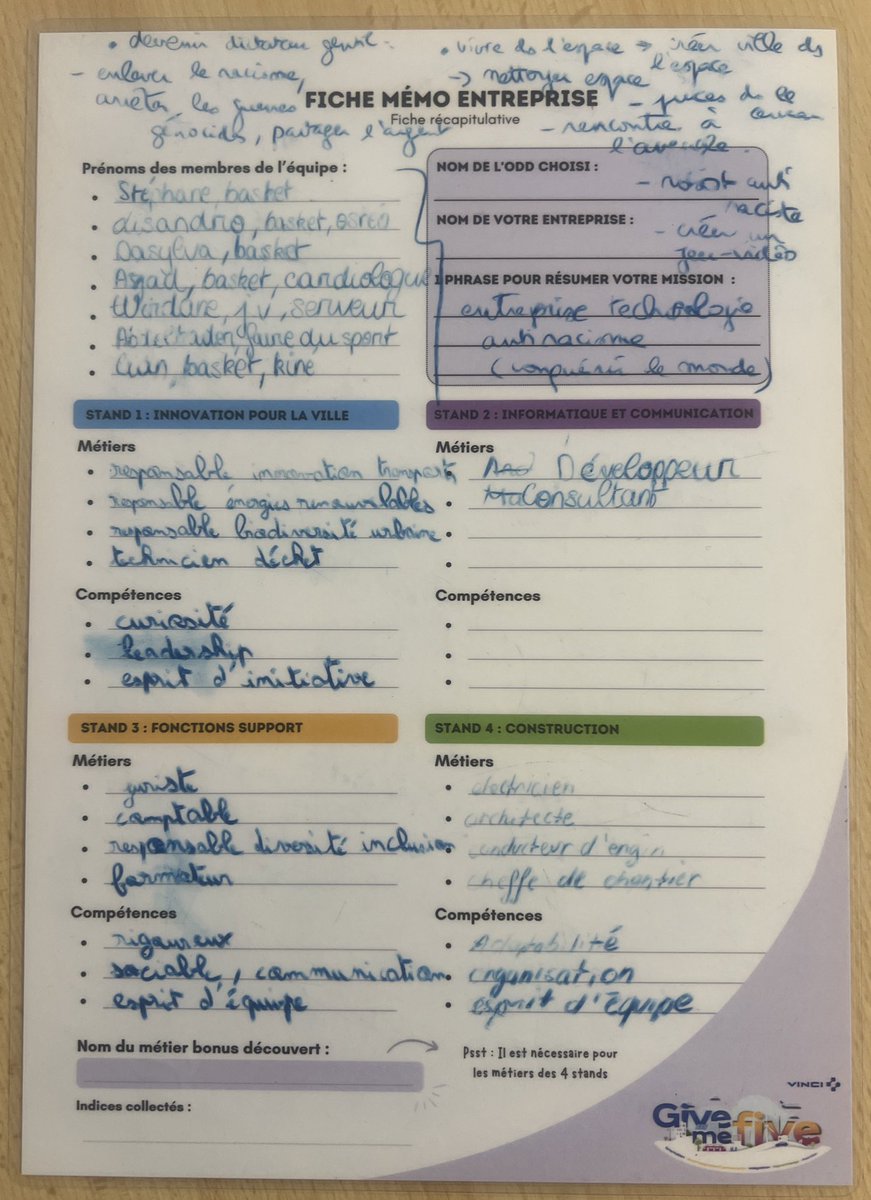 • devenir dictateur gentil
- enlever le racisme,
arrêter les guerres
génocides, partager l'argent
• vivre ds l'espace → créer ville ds l'espace
→ nettoyer espace
- puces ds le cerveau
- rencontre à l'aveugle
- robot anti raciste
- créer un jeu-vidéo
FICHE MÉMO ENTREPRISE
Fiche récapitulative
Prénoms des membres de l'équipe :
• Stéphane, basket
• disandro, basket,
• Dasylva, basket
• Asnad, basket, cardiologue
• Wirdane, jv, serveur
• faire du sport
• basket, kiné
NOM DE L'ODD CHOISI :
NOM DE VOTRE ENTREPRISE :
1 PHRASE POUR RÉSUMER VOTRE MISSION :
entreprise technologie
antiracisme
(conquérir le monde)
STAND 1 : INNOVATION POUR LA VILLE
Métiers
• responsable innovation transport
• responsable énergies renouvelables
• responsable biodiversité urbaine
• technicien déchet
Compétences
• curiosité
• leadership
• esprit d'initiative
STAND 2 : INFORMATIQUE ET COMMUNICATION
Métiers
• Développeur
• Consultant
•
•
Compétences
•
•
•
STAND 3 : FONCTIONS SUPPORT
Métiers
• juriste
• comptable
• responsable diversité inclusion
• formateur
Compétences
• rigoureux
• sociable, communication
• esprit d'équipe
STAND 4 : CONSTRUCTION
Métiers
• électricien
• architecte
• conducteur d'engin
• cheffe de chantier
Compétences
• Adaptabilité
• organisation
• esprit d'équipe
Nom du métier bonus découvert :
Psst : Il est nécessaire pour
les métiers des 4 stands
Indices collectés :
VINCI
Give me five